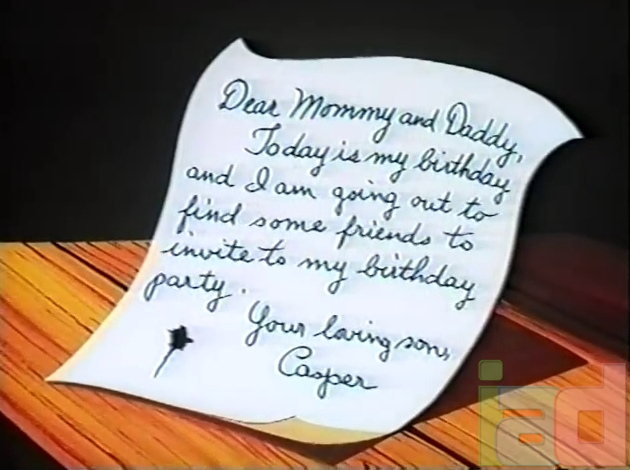 Dear Mommy and Daddy,
Today is my birthday
and I am going out to
find some friends to
invite to my birthday
party.
Your loving son,
Casper
iad